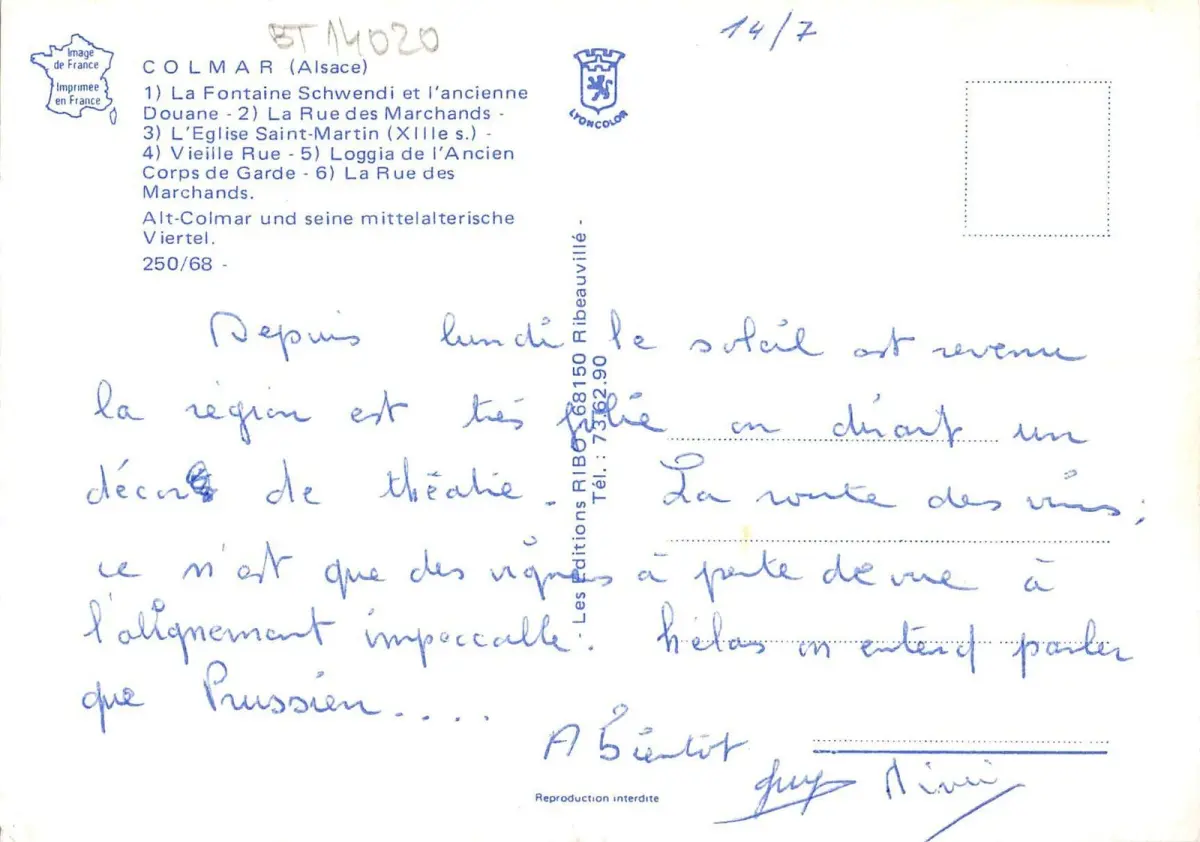 BT 14020
14/7
Image
de France
Imprimée
en France
COLMAR (Alsace)
1) La Fontaine Schwendi et l'ancienne
Douane - 2) La Rue des Marchands -
3) L'Eglise Saint-Martin (XIIIe s.) -
4) Vieille Rue - 5) Loggia de l'Ancien
Corps de Garde - 6) La Rue des
Marchands.
Alt-Colmar und seine mittelalterische
Viertel.
250/68 -
LYONCOLOR
Les Editions RIBO - 68150 Ribeauvillé -
Tél. : 73.62.90
Depuis lundi le soleil est revenu
la région est très jolie on dirait un
décor de théatre. La route des vins;
ce n'est que des vignes à perte de vue à
l'alignement impeccable. hélas on entend parler
que Prussien....
A Bientot
Guy
Reproduction interdite